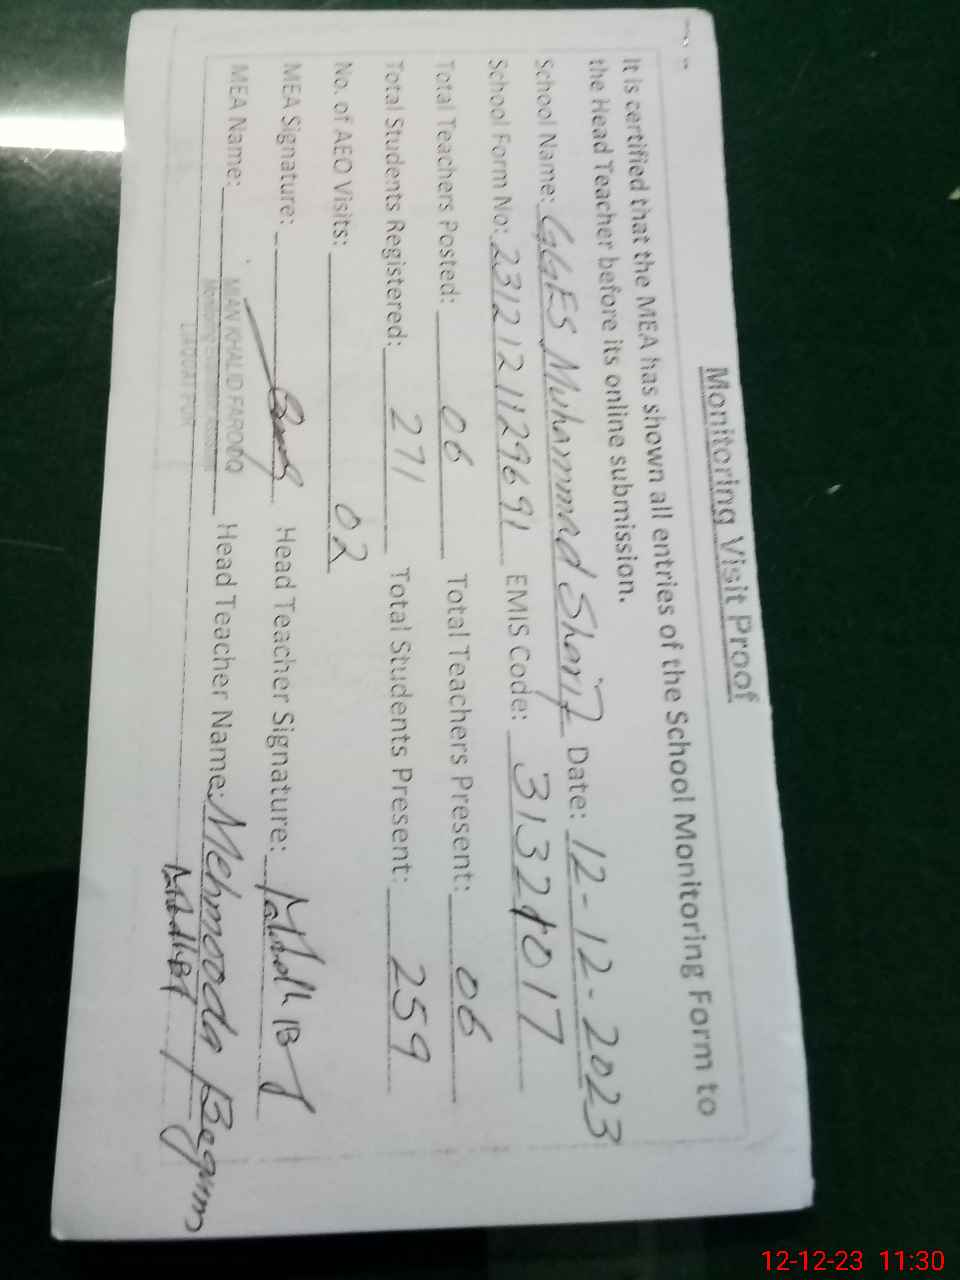 Monitoring Visit Proof
It is certified that the MEA has shown all entries of the School Monitoring Form to
the Head Teacher before its online submission.
School Name: GGES Muhammad Sharif Date: 12-12-2023
School Form No: 2312121129691 EMIS Code: 31321017
Total Teachers Posted: 06 Total Teachers Present: 06
Total Students Registered: 271 Total Students Present: 259
No. of AEO Visits: 02
MEA Signature: Head Teacher Signature:
MEA Name: MIAN KHALID FAROOQ Head Teacher Name: Mehmooda Begum
LIAQUAT PUR
12-12-23 11:30